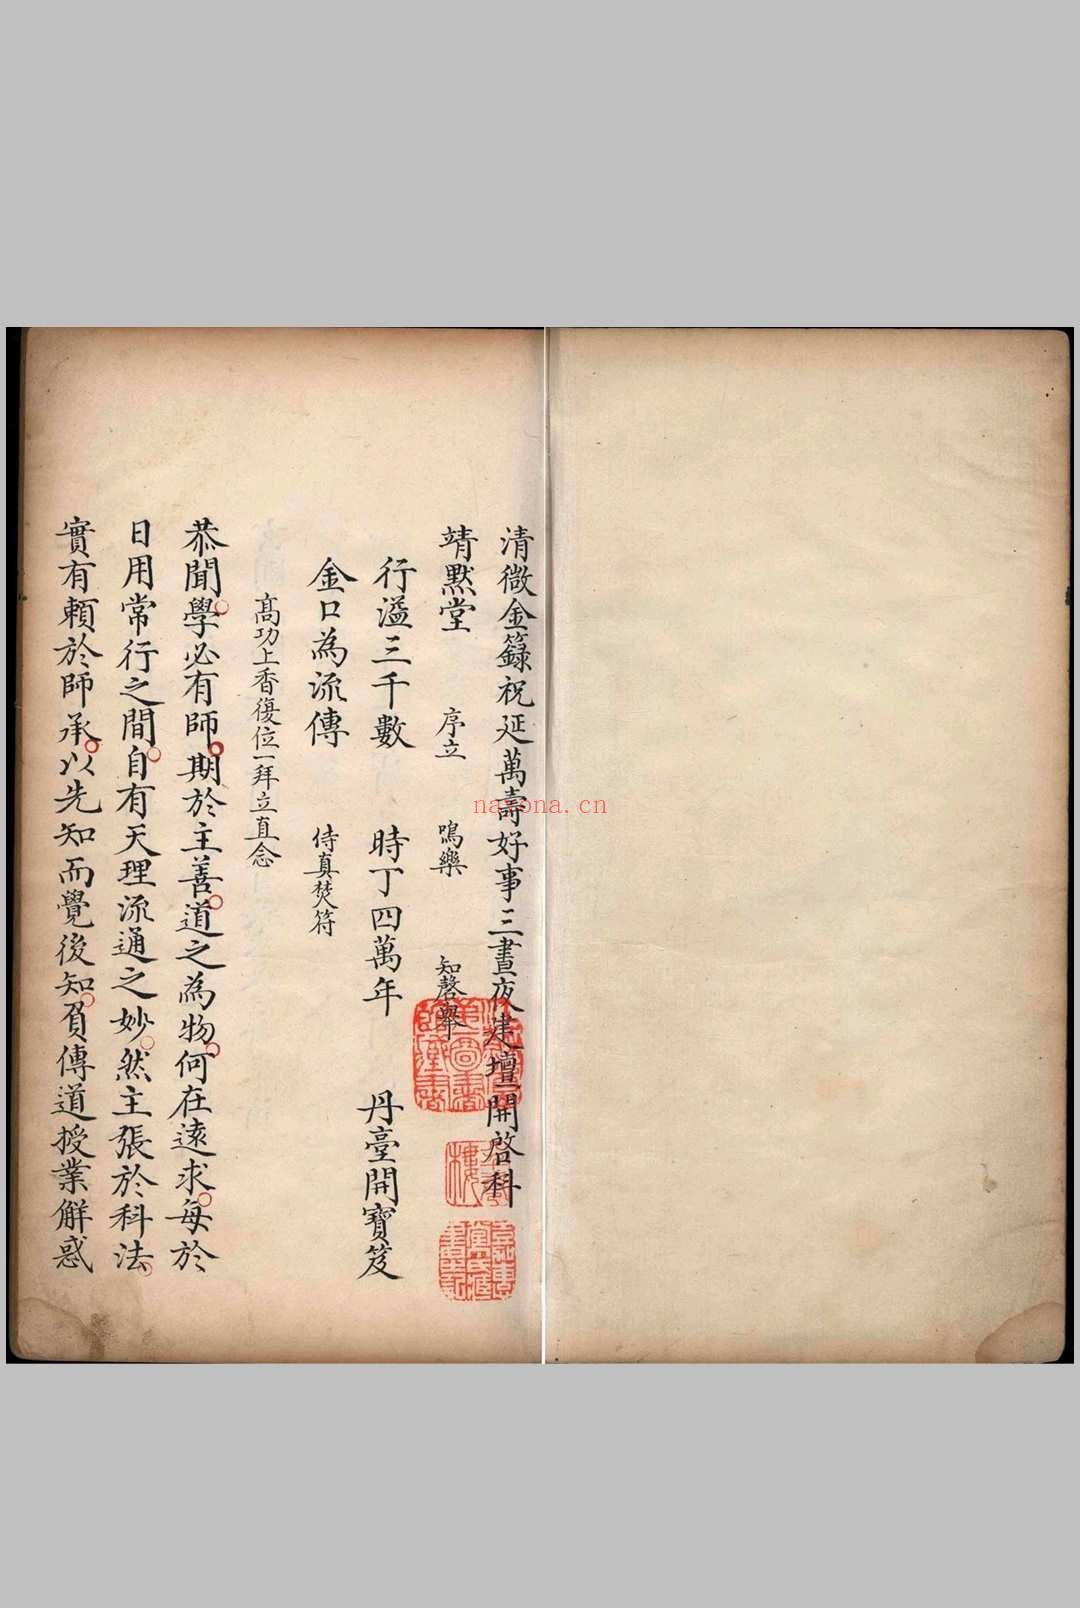 清微金籙祝延萬壽好事三晝夜建壇開啓科
靖默堂 序立 鳴樂 知磬舉
行溢三千數 時丁四萬年 丹臺開寶笈
金口為流傳 侍真焚符
高功上香復位一拜立直念
恭聞學必有師期於主善道之為物何在遠求每於
日用常行之間自有天理流通之妙然主張於科法
實有賴於師承以先知而覺後知負傳道授業解惑
nayona.cn